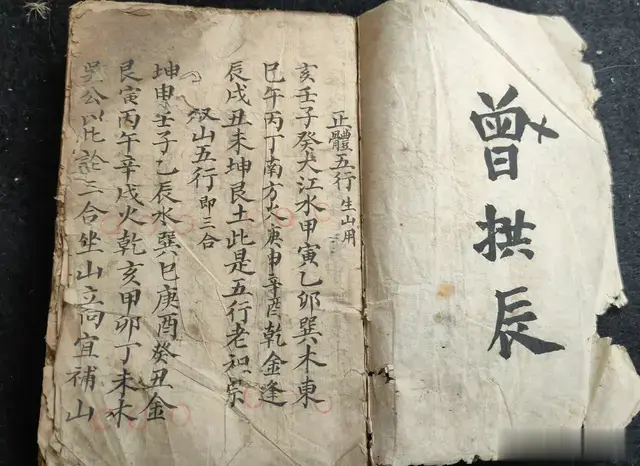 曾拱辰
正體五行 生山用
亥壬子癸大江水甲寅乙卯巽木東
巳午丙丁南方火庚申辛酉乾金逢
辰戌丑未坤艮土此是五行老祖宗
双山五行 即三合
坤申壬子乙辰水巽巳庚酉癸丑金
艮寅丙午辛戌火乾亥甲卯丁未木
吳公以比於三合坐山立向宜補山